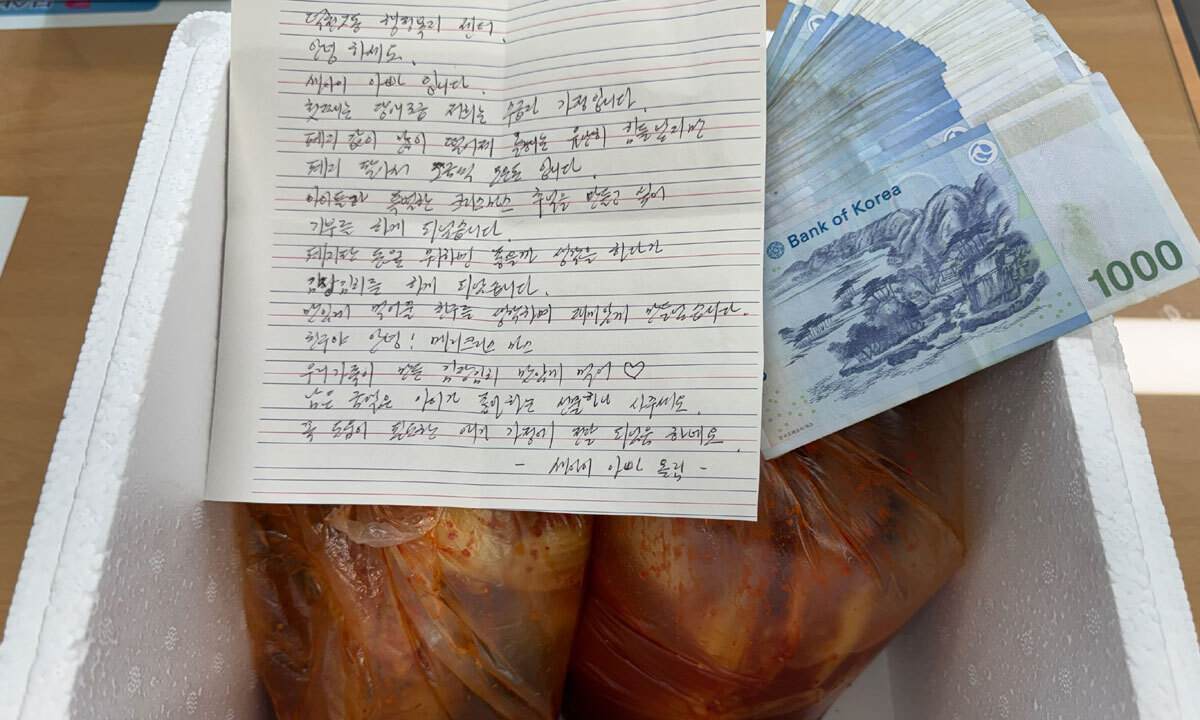 덕천2동 행정복지 센터.
안녕 하세요.
세아이 아빠 입니다.
첫째는 장애3급 저희는 수급자 가정입니다.
폐지 값이 많이 떨어져 올해는 유난히 힘들었지만
폐지 팔아서 조금씩 모은돈 입니다.
아이들과 특별한 크리스마스 추억을 만들고 싶어
기부를 하게 되었습니다.
뭘 하면 좋을까 생각을 하다가
김장김치를 하게 되었습니다.
맛있게 먹어줄 친구를 생각하며 재미있게 만들었습니다.
친구야 안녕! 메리크리스 마스
우리가족이 만든 김장김치 맛있게 먹어♡
남은 금액은 아이가 좋아하는 선물하나 사주세요.
꼭 도움이 필요한 애기 가정에 전달 되었음 하네요.
- 세아이 아빠 올림 -
Bank of Korea
1000